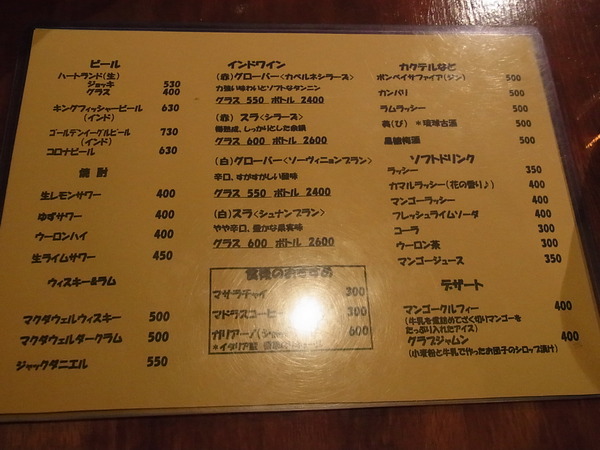 ビール
ハートランド(生)
ジョッキ 530
グラス 400
キングフィッシャービール 630
(インド)
ゴールデンイーグルビール 730
(インド)
コロナビール 630
焼酎
生レモンサワー 400
ゆずサワー 400
ウーロンハイ 400
生ライムサワー 450
ウィスキー&ラム
マクダウェルウィスキー 500
マクダウェルダークラム 500
ジャックダニエル 550
インドワイン
(赤)グローバー<カベルネシラーズ>
力強い味わいとソフトなタンニン
グラス 550 ボトル 2400
(赤)スラ<シラーズ>
しっかりとした余韻
グラス 600 ボトル 2600
(白)グローバー<ソーヴィニョンブラン>
辛口、すがすがしい酸味
グラス 550 ボトル 2400
(白)スラ<シュナンブラン>
やや辛口、豊かな果実味
グラス 600 ボトル 2600
食後のおすすめ
マサラチャイ 300
マドラスコーヒー 300
ガリアーノ 600
*イタリア産
カクテルなど
ボンベイサファイア(ジン) 500
カンパリ 500
ラムラッシー 500
(び) *琉球古酒 500
黒糖梅酒 500
ソフトドリンク
ラッシー 350
カマルラッシー(花の香り♪) 400
マンゴーラッシー 400
フレッシュライムソーダ 400
コーラ 300
ウーロン茶 300
マンゴージュース 350
デザート
マンゴークルフィー 400
(牛乳を煮詰めてざく切りマンゴーを
たっぷり入れたアイス)
グラブジャムン 400
(小麦粉と牛乳で作ったお団子のシロップ漬け)